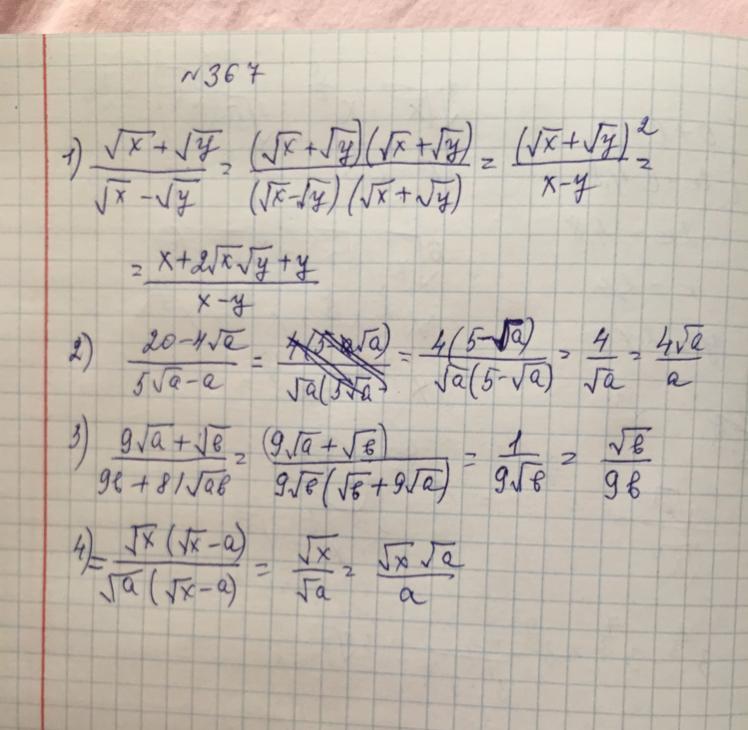 №367
1) (√x + √y)/(√x - √y) = ((√x + √y)(√x + √y))/((√x - √y)(√x + √y)) = (√x + √y)²/(x - y) =
= (x + 2√x√y + y)/(x - y)
2) (20 - 4√a)/(5√a - a) = = (4(5 - √a))/(√a(5 - √a)) = 4/√a = 4√a/a
3) (9√a + √b)/(9b + 81√ab) = (9√a + √b)/(9√b(√b + 9√a)) = 1/(9√b) = √b/(9b)
4) = (√x(√x - a))/(√a(√x - a)) = √x/√a = (√x √a)/a